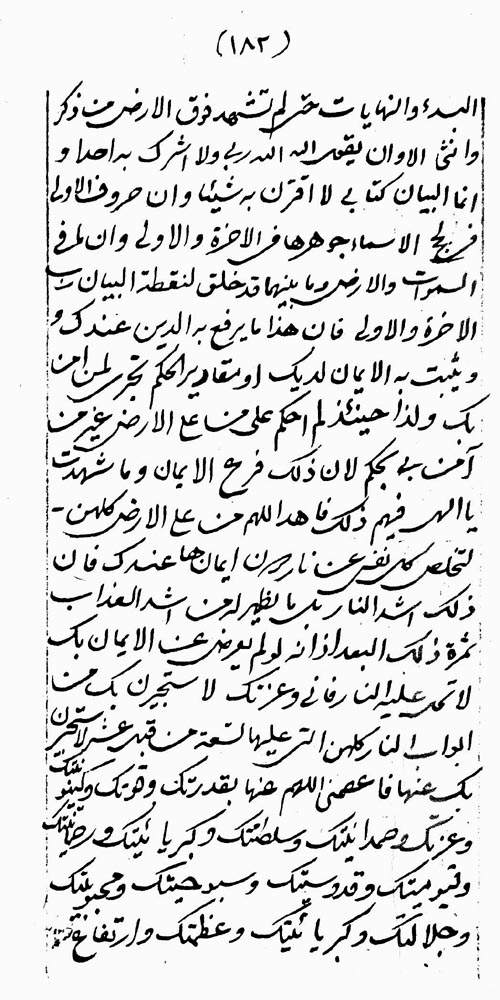 (١٨٢)
البدء والنهايات حتى لم تشهد فوق الارض من ذكر
وانثى الا وان يقول الله الله ربي ولا اشرك به احدا و
انما البيان كتابي لا اقرن به شيئا وان حروف الاولى
في الاسماء جوهرها في الاخرة والاولى وان لمن في
السموات والارض وما بينهما قد خلق لنقطة البيان رب
الاخرة والاولى فان هذا ما يرفع به الدين عندك و
ويثبت به الايمان لديك او مقادير الحكم تجرى لمن امن
بك ولذا حينئذ لم احكم على من على الارض غير من
آمن بي بحكم لان ذلك فرع الايمان وما شهدت
يا الهي فيهم ذلك فاهد اللهم من على الارض كلهن
لتخلص كل نفس عن نار ايمانها عندك فان
ذلك اشد النار بل ما يظهر له من اشد العذاب
ثمرة ذلك البعد اذ انه لو لم يعرض عن الايمان بك
لا تحل عليه النار فاني وعزتك لاستجيرن بك من
ابواب النار كلهن التي عليها تسعة من قبل عشر لاستجيرن
بك عنها فاعصمني اللهم عنها بقدرتك وقوتك
وعزتك وصمدانيتك وسلطنتك وكبريائيتك
وقيوميتك وقدوسيتك وسبوحيتك ومحبوبيتك
وجلالتك وكبريائيتك وعظمتك وارتفاع